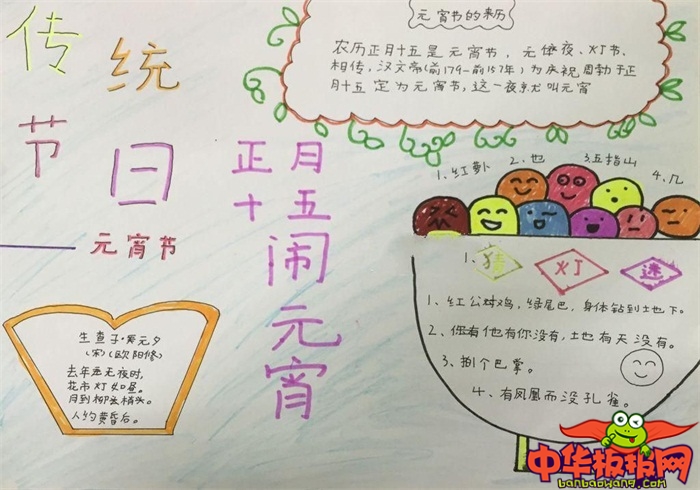 传统
节日
——元宵节
元宵节的来历
农历正月十五是元宵节，元夜、灯节、
相传，汉文帝(前179-前157年)为庆祝周勃于正
月十五 定为元宵节，这一夜就叫元宵
正月
十五
闹元宵
1、红萝卜
2、也
3、五指山
4、几
1、
猜灯迷
1、红公鸡，绿尾巴，身体钻到土地下。
2、他有你没有，土地有天没有。
3、捌个巴掌。
4、有凤凰而没孔雀。
生查子·元夕
(宋)(欧阳修)
去年元夜时，
花市灯如昼。
月到柳梢头。
人约黄昏后。
中华板报网
banbaowang.com